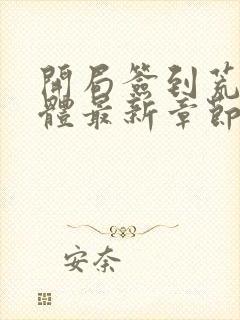 開局簽到荒
體最新章節
安奈